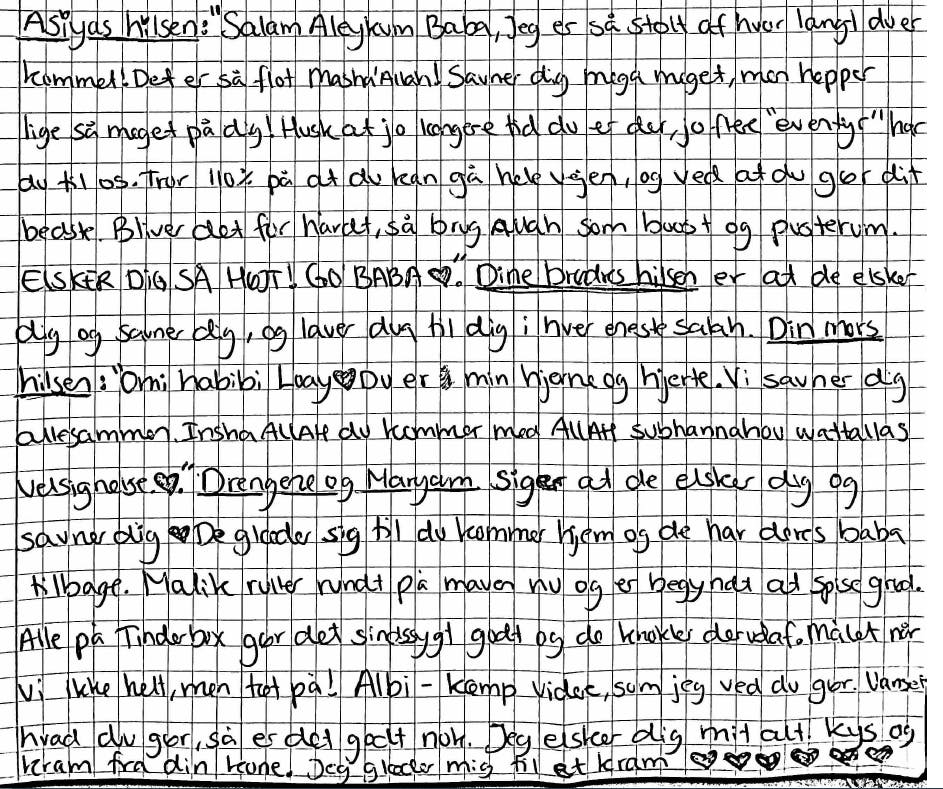 Asiyas hilsen: "Salam Aleykum Baba, Jeg er så stolt af hvor langt du er
kommet! Det er så flot Masha'Allah! Savner dig mega meget, men hepper
lige så meget på dig! Husk at jo længere tid du er der, jo flere "eventyr" har
du til os. Tror 110% på at du kan gå hele vejen, og ved at du gør dit
bedste. Bliver det for hårdt, så brug Allah som boost og pusterum.
ELSKER DIG SÅ HØJT! GO BABA ♡". Dine brødres hilsen er at de elsker
dig og savner dig, og laver dua til dig i hver eneste salah. Din mors
hilsen: "Omi habibi Loay ♡ Du er min hjerne og hjerte. Vi savner dig
allesammen. Insha ALLAH du kommer med ALLAH subhannahou wattallas
velsignelse. ♡." Drengene og Maryam siger at de elsker dig og
savner dig ♡ De glæder sig til du kommer hjem og de har deres baba
tilbage. Malik ruller rundt på maven nu og er begyndt at spise grød.
Alle på Tinderbox gør det sindssygt godt og de knokler derudaf. Målet når
vi ikke helt, men tæt på! Albi - kæmp videre, som jeg ved du gør. Uanset
hvad du gør, så er det godt nok. Jeg elsker dig mit alt! Kys og
kram fra din kone. Jeg glæder mig til et kram ♡ ♡ ♡ ♡ ♡ ♡